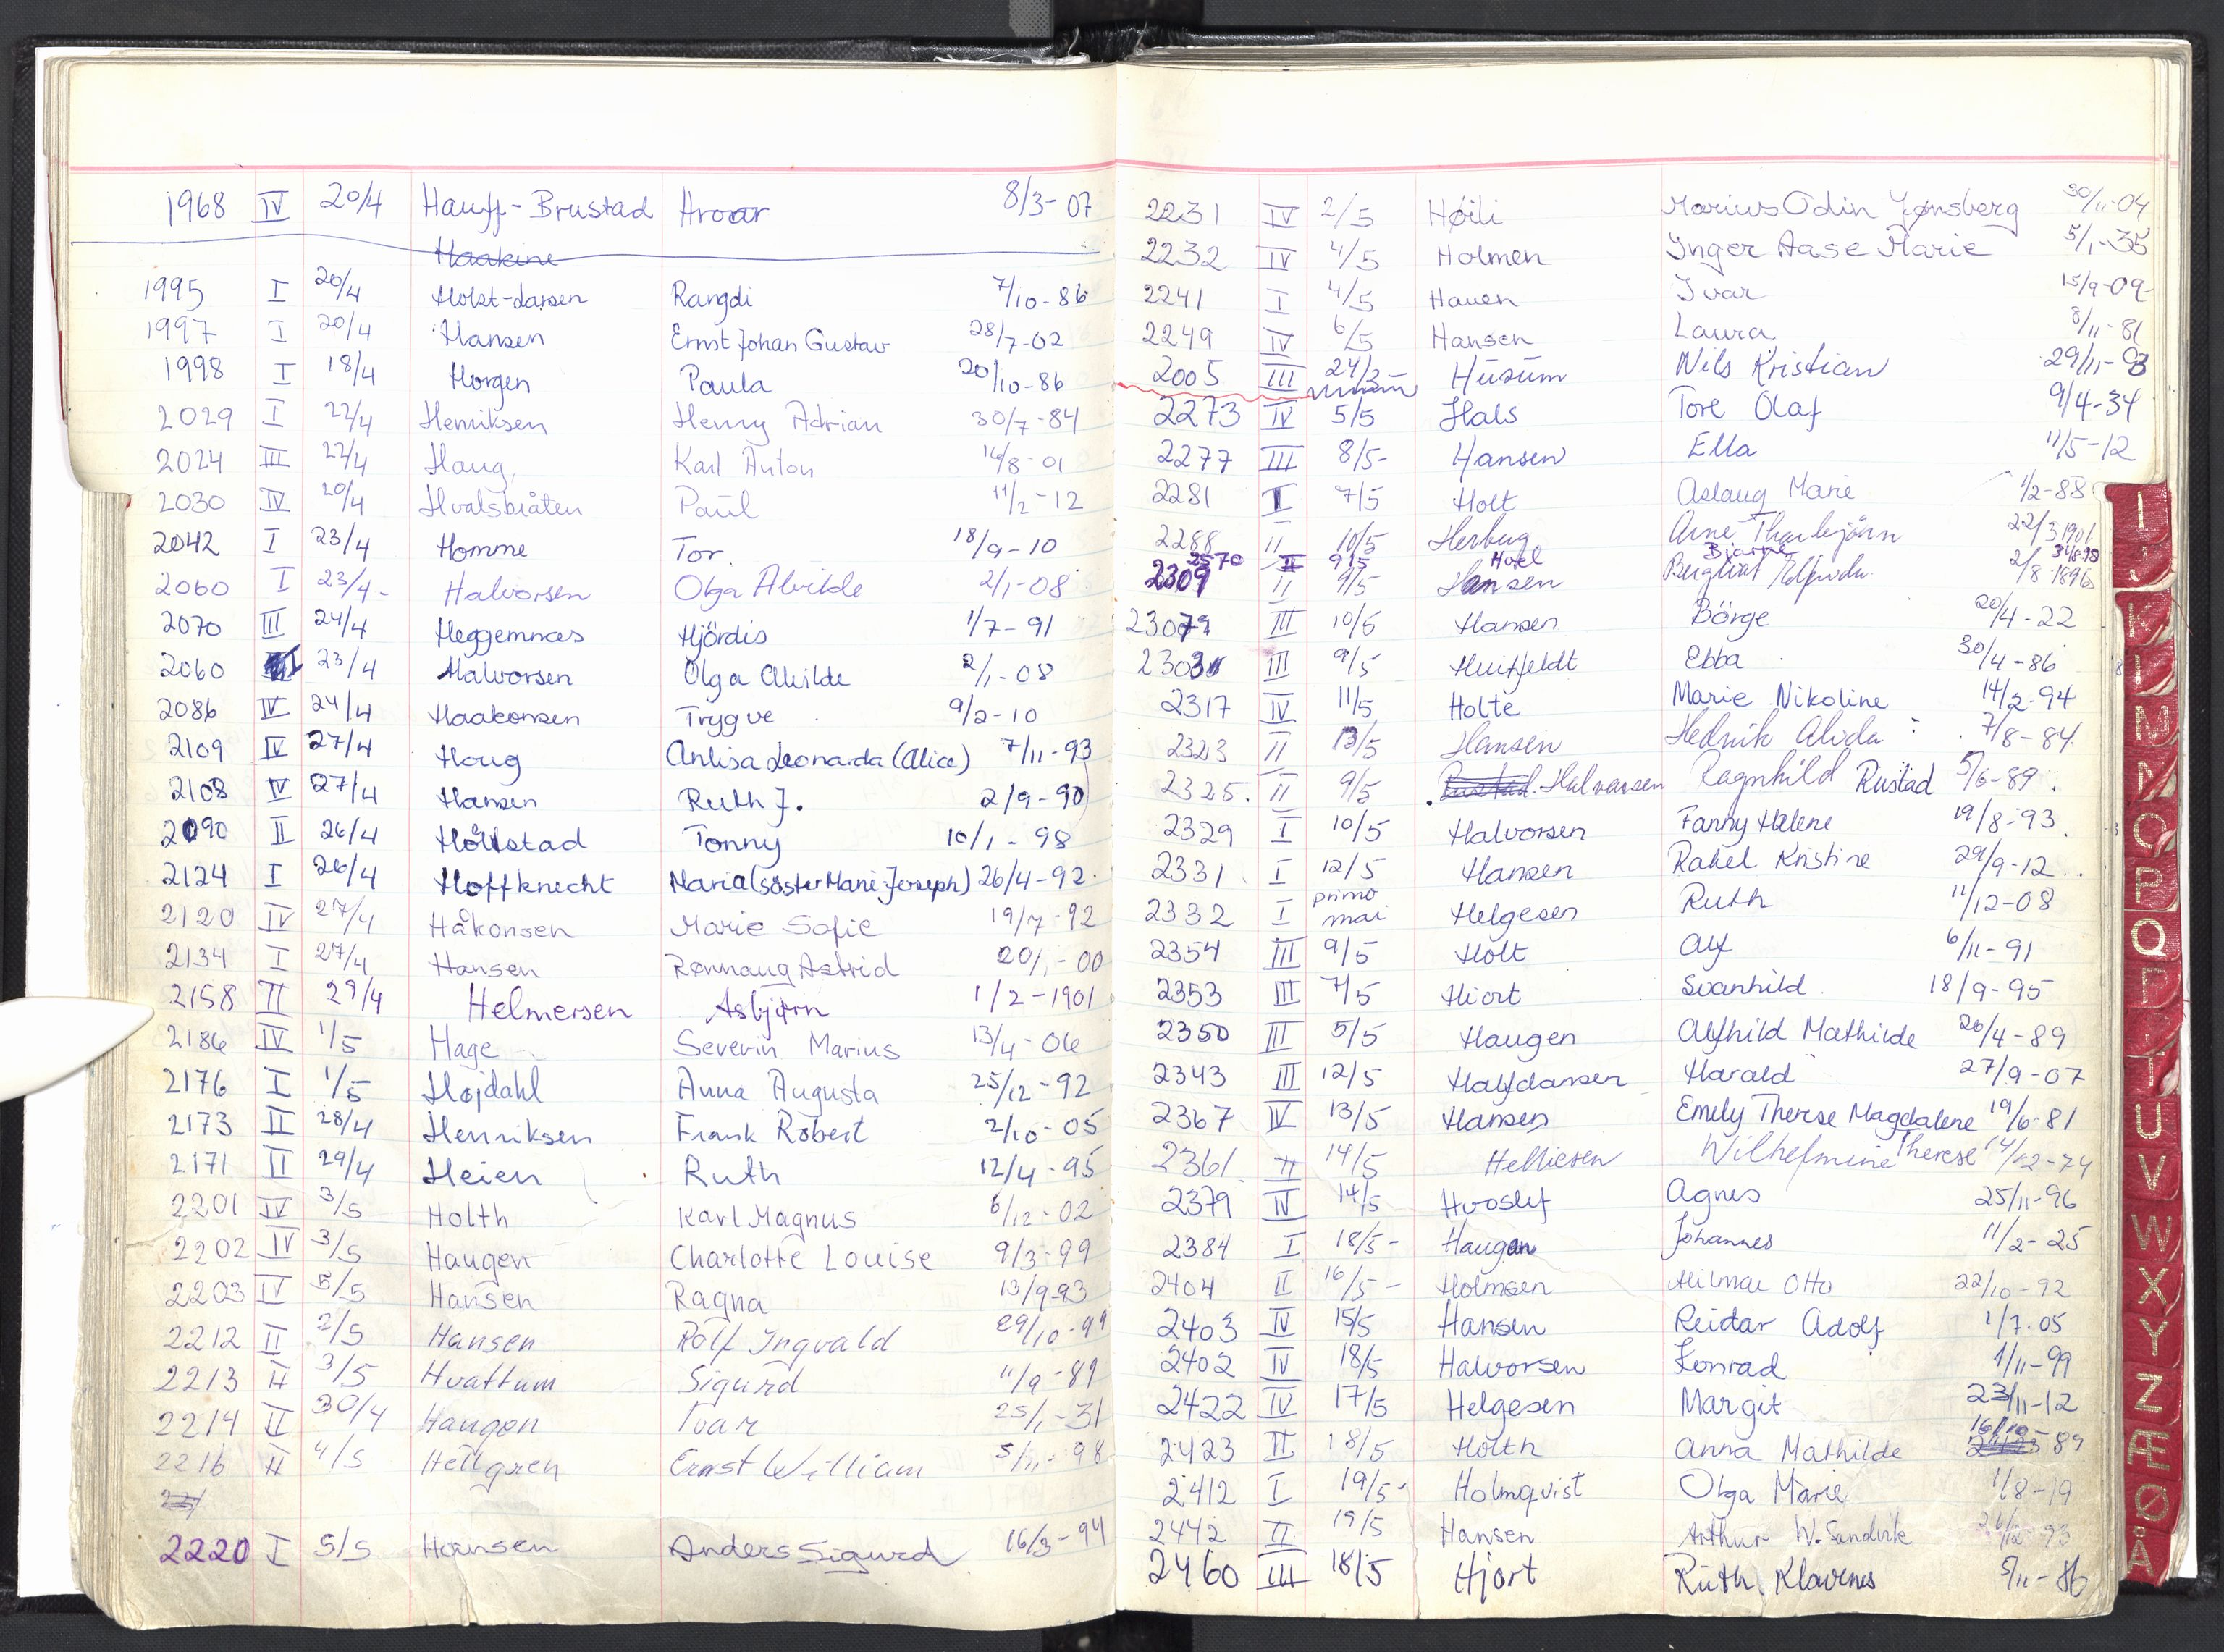 1968 IV 20/4 Hauff-Brustad Hroar 8/3-07
Haakine
1995 I 20/4 Holst-Larsen Rangdi 7/10-86
1997 I 20/4 Hansen Ernst Johan Gustav 28/7-02
1998 I 18/4 Horgen Paula 20/10-86
2029 I 22/4 Henriksen Henry Adrian 30/7-84
2024 III 22/4 Haug Karl Anton 14/8-01
2030 IV 20/4 Hvalsbråten Paul 11/2-12
2042 I 23/4 Homme Tor 18/9-10
2060 I 23/4- Halvorsen Olga Alvilde 2/1-08
2070 III 24/4 Heggemnæs Hjördis 1/7-91
2060 I 23/4 Halvorsen Olga Alvilde 2/1-08
2086 IV 24/4 Haakonsen Trygve 9/2-10
2109 IV 27/4 Houg Anlisa Leonarda (Alice) 7/11-93
2108 IV 27/4 Hansen Ruth J. 2/9-90
2090 II 26/4 Tonny 10/1-98
2124 I 26/4 Hoffknecht Maria (søster Marie-Joseph) 26/4-92.
2120 IV 27/4 Håkonsen Marie Sofie 19/7-92
2134 I 27/4 Hansen Rønnaug Astrid 20/1-00
2158 II 29/4 Helmersen Asbjørn 1/2-1901
2186 IV 1/5 Hage Severin Marius 13/4-06
2176 I 1/5 Højdahl Anna Augusta 25/12-92
2173 II 28/4 Henriksen Frank Robert 2/10-05
2171 II 29/4 Heien Ruth 12/4-95
2201 IV 3/5 Holth Karl Magnus 6/12-02
2202 IV 3/5 Haugen Charlotte Louise 9/3-99
2203 IV 5/5 Hansen Ragna 13/9-93
2212 II 2/5 Hansen Rolf Ingvald 29/10-99
2213 II 3/5 Hvattum Sigurd 11/9-89
2214 II 30/4 Haugen Ivar 25/1-31
2216 II 4/5 Hellgren Ernst William 5/11-98
2220 I 5/5 Hansen Anders Sigurd 16/3-94
2231 IV 2/5 Høili Marius Odin Jønsberg 30/11-04
2232 IV 4/5 Holmen Inger Aase Marie 5/1-35
2241 I 4/5 Hauen Ivar 15/9-09
2249 IV 6/5 Hansen Laura 8/11-81
2005 III 24/3 Husum Nils Kristian 29/11-93
2273 IV 5/5 Hals Tore Olaf 9/4-34
2277 III 8/5- Hansen Ella 11/5-12
2281 I 7/5 Holt Aslaug Marie 1/2-88
2288 II 10/5 Herbug Arne Thorbjørn 22/3 1901
2570 II 9/5 Hoel Bjarne 3/4 898
2309 II 9/5 Hansen Bergliot 2/8-1896
2307 III 10/5 Hansen Börge 20/4-22
2303 III 9/5 Huitfeldt Ebba 30/4-86
2317 IV 11/5 Holte Marie Nikoline 14/2-94
2323 II 13/5 Hansen Hedvik Alvida 7/8-84
2325. II 9/5 Halvorsen Ragnhild Rustad 5/6-89.
2329 I 10/5 Halvorsen Fanny Helene 19/8-93.
2331 I 12/5 Hansen Rakel Kristine 29/9-12
2332 I primo mai Helgesen Ruth 11/12-08
2354 III 9/5 Holt Alf 6/11-91
2353 III 7/5 Hiort Svanhild 18/9-95
2350 III 5/5 Haugen Alfhild Mathilde 26/4-89
2343 III 12/5 Halfdansen Harald 27/9-07
2367 IV 13/5 Hansen Emely Therese Magdalene 19/6-81
2361 II 14/5 Helliesen Wilhelmine Therese 14/12-74
2379 IV 14/5 Hvoslef Agnes 25/11-96
2384 I 18/5- Haugen Johannes 11/2-25
2404 II 16/5- Holmsen Hilmar Otto 22/10-92
2403 IV 15/5 Hansen Reidar Adolf 1/7-05
2402 IV 18/5 Halvorsen Konrad 1/11-99
2422 IV 17/5 Helgesen Margit 23/11-12
2423 II 18/5 Holth Anna Mathilde 16/10-89
2412 I 19/5- Holmqvist Olga Marie 1/8-19
2442 II 19/5 Hansen Arthur W. Sandvik 93
2460 III 18/5 Hjort Ruth Klavenes 5/11-86
I
J
K
L
M
N
O
P
Q
R
T
U
V
W
X
Y
Z
Æ
Ø
Å